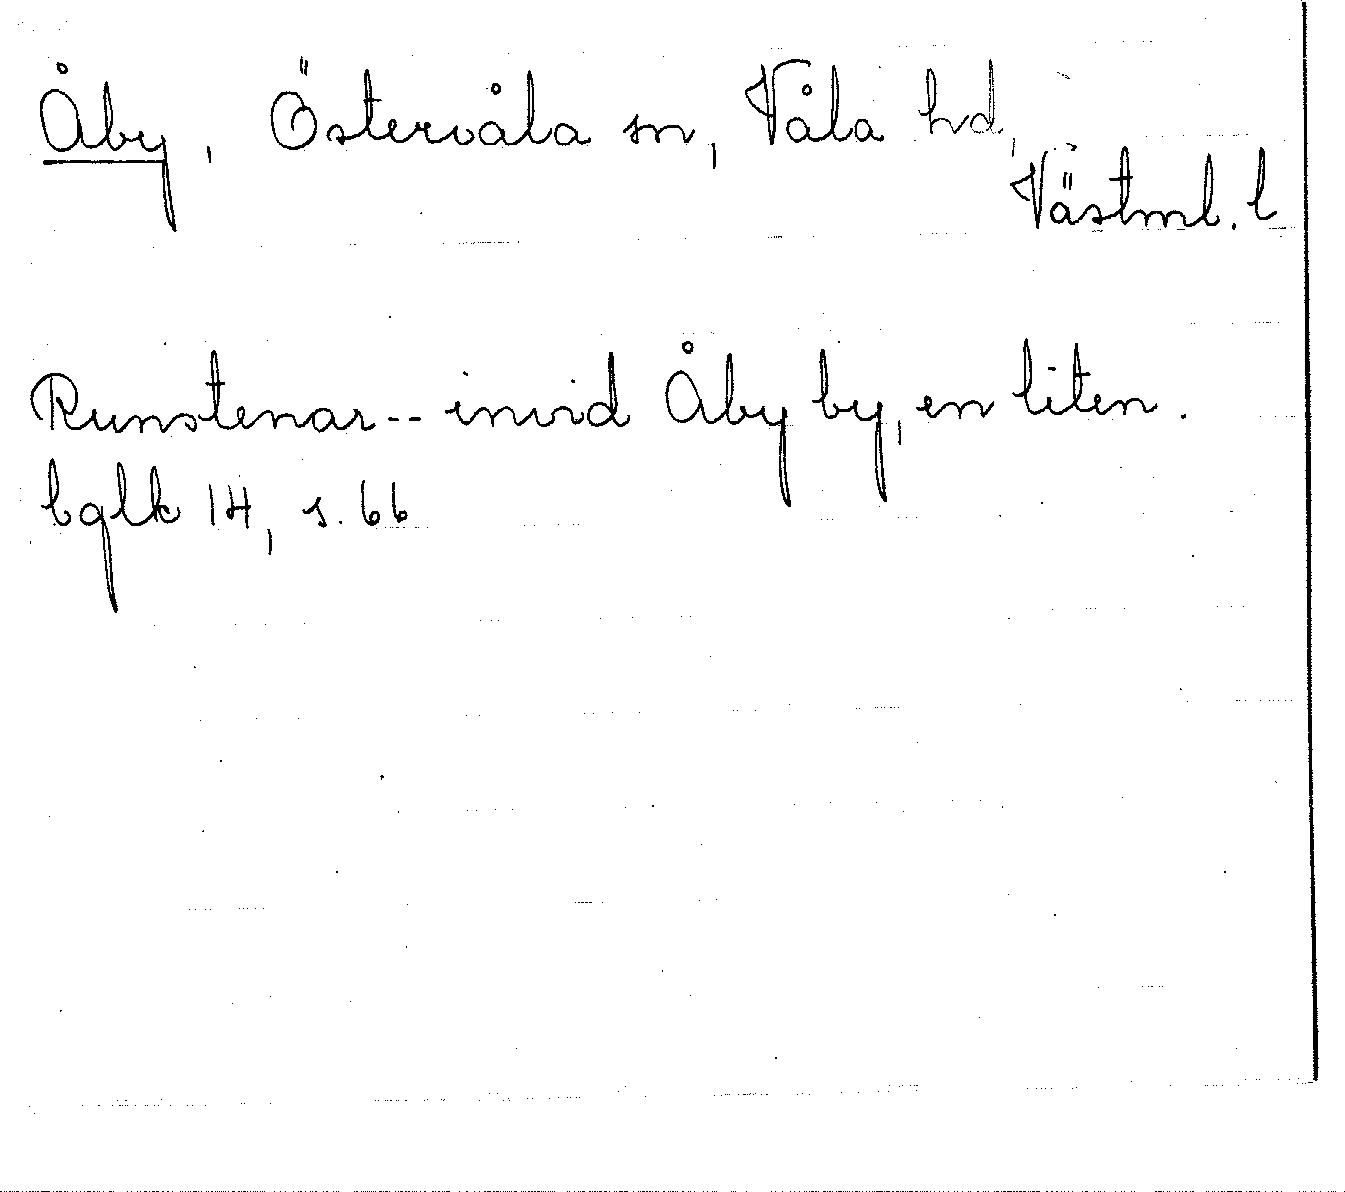 Åby, Östervåla sn, Våla hd,
Västml. l
Runstenar -- invid Åby by, en liten.
bglk 14, s. 66